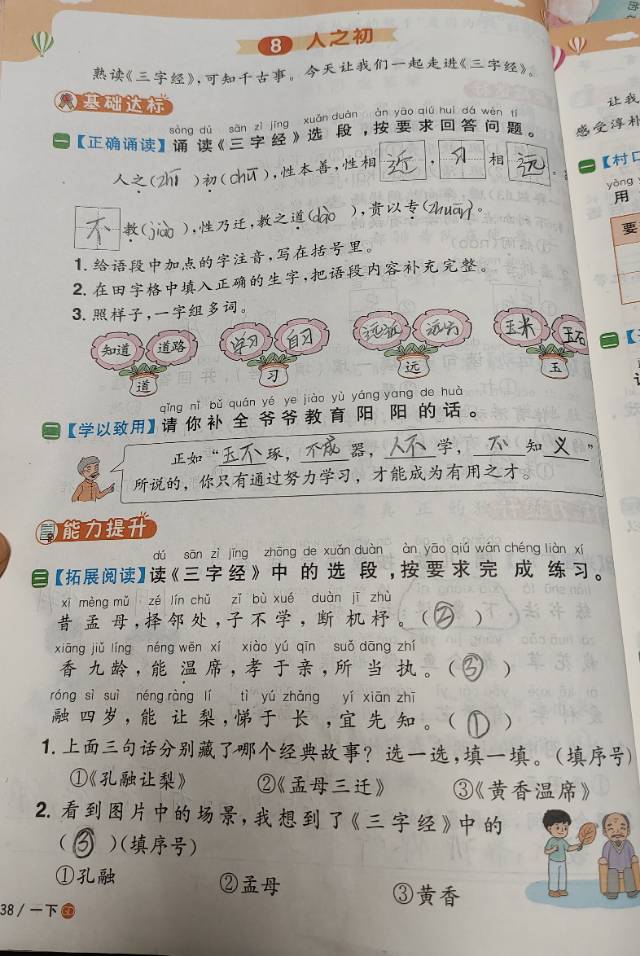 8 人之初
熟读《三字经》,可知千古事。今天让我们一起走进《三字经》。
基础达标
sòng dú sān zì jīng xuǎn duàn àn yāo qiú huí dá wèn tí
一【正确诵读】诵读《三字经》选段,按要求回答问题。
人之(zhī)初(chū),性本善,性相近,习相远。
不教(jiào),性乃迁,教之道(dào),贵以专(zhuān)。
1. 给语段中加点的字注音,写在括号里。
2. 在田字格中填入正确的生字,把语段内容补充完整。
3. 照样子,一字组多词。
知道 道路 学习 自习 远近 玉米 玉石
道 习 远 玉
qǐng nǐ bǔ quán yé ye jiào yù yáng yang de huà
二【学以致用】请你补全爷爷教育阳阳的话。
正如“玉不琢,不成器,人不学,不知义”
所说的,你只有通过努力学习,才能成为有用之才。
能力提升
dú sān zì jīng zhōng de xuǎn duàn àn yāo qiú wán chéng liàn xí
三【拓展阅读】读《三字经》中的选段,按要求完成练习。
xī mèng mǔ zé lín chǔ zǐ bù xué duàn jī zhù
昔孟母,择邻处,子不学,断机杼。(②)
xiāng jiǔ líng néng wēn xí xiào yú qīn suǒ dāng zhí
香九龄,能温席,孝于亲,所当执。(③)
róng sì suì néng ràng lí tì yú zhǎng yí xiān zhī
融四岁,能让梨,悌于长,宜先知。(①)
1. 上面三句话分别藏了哪个经典故事?选一选,填一填。(填序号)
①《孔融让梨》 ②《孟母三迁》 ③《黄香温席》
2. 看到图片中的场景,我想到了《三字经》中的
(③)(填序号)
①孔融 ②孟母 ③黄香
38/一下
让我
感受淳朴
一【村口
yòng
用
要
二【